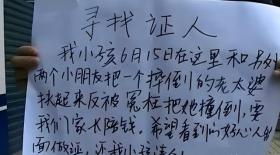 寻找证人
我小孩6月15日在这里和另外
两个小朋友把一个摔倒的老太婆
扶起来反被冤枉把她撞倒,要
我们家长赔钱,希望看到的好心人出
面做证,还我小孩清白